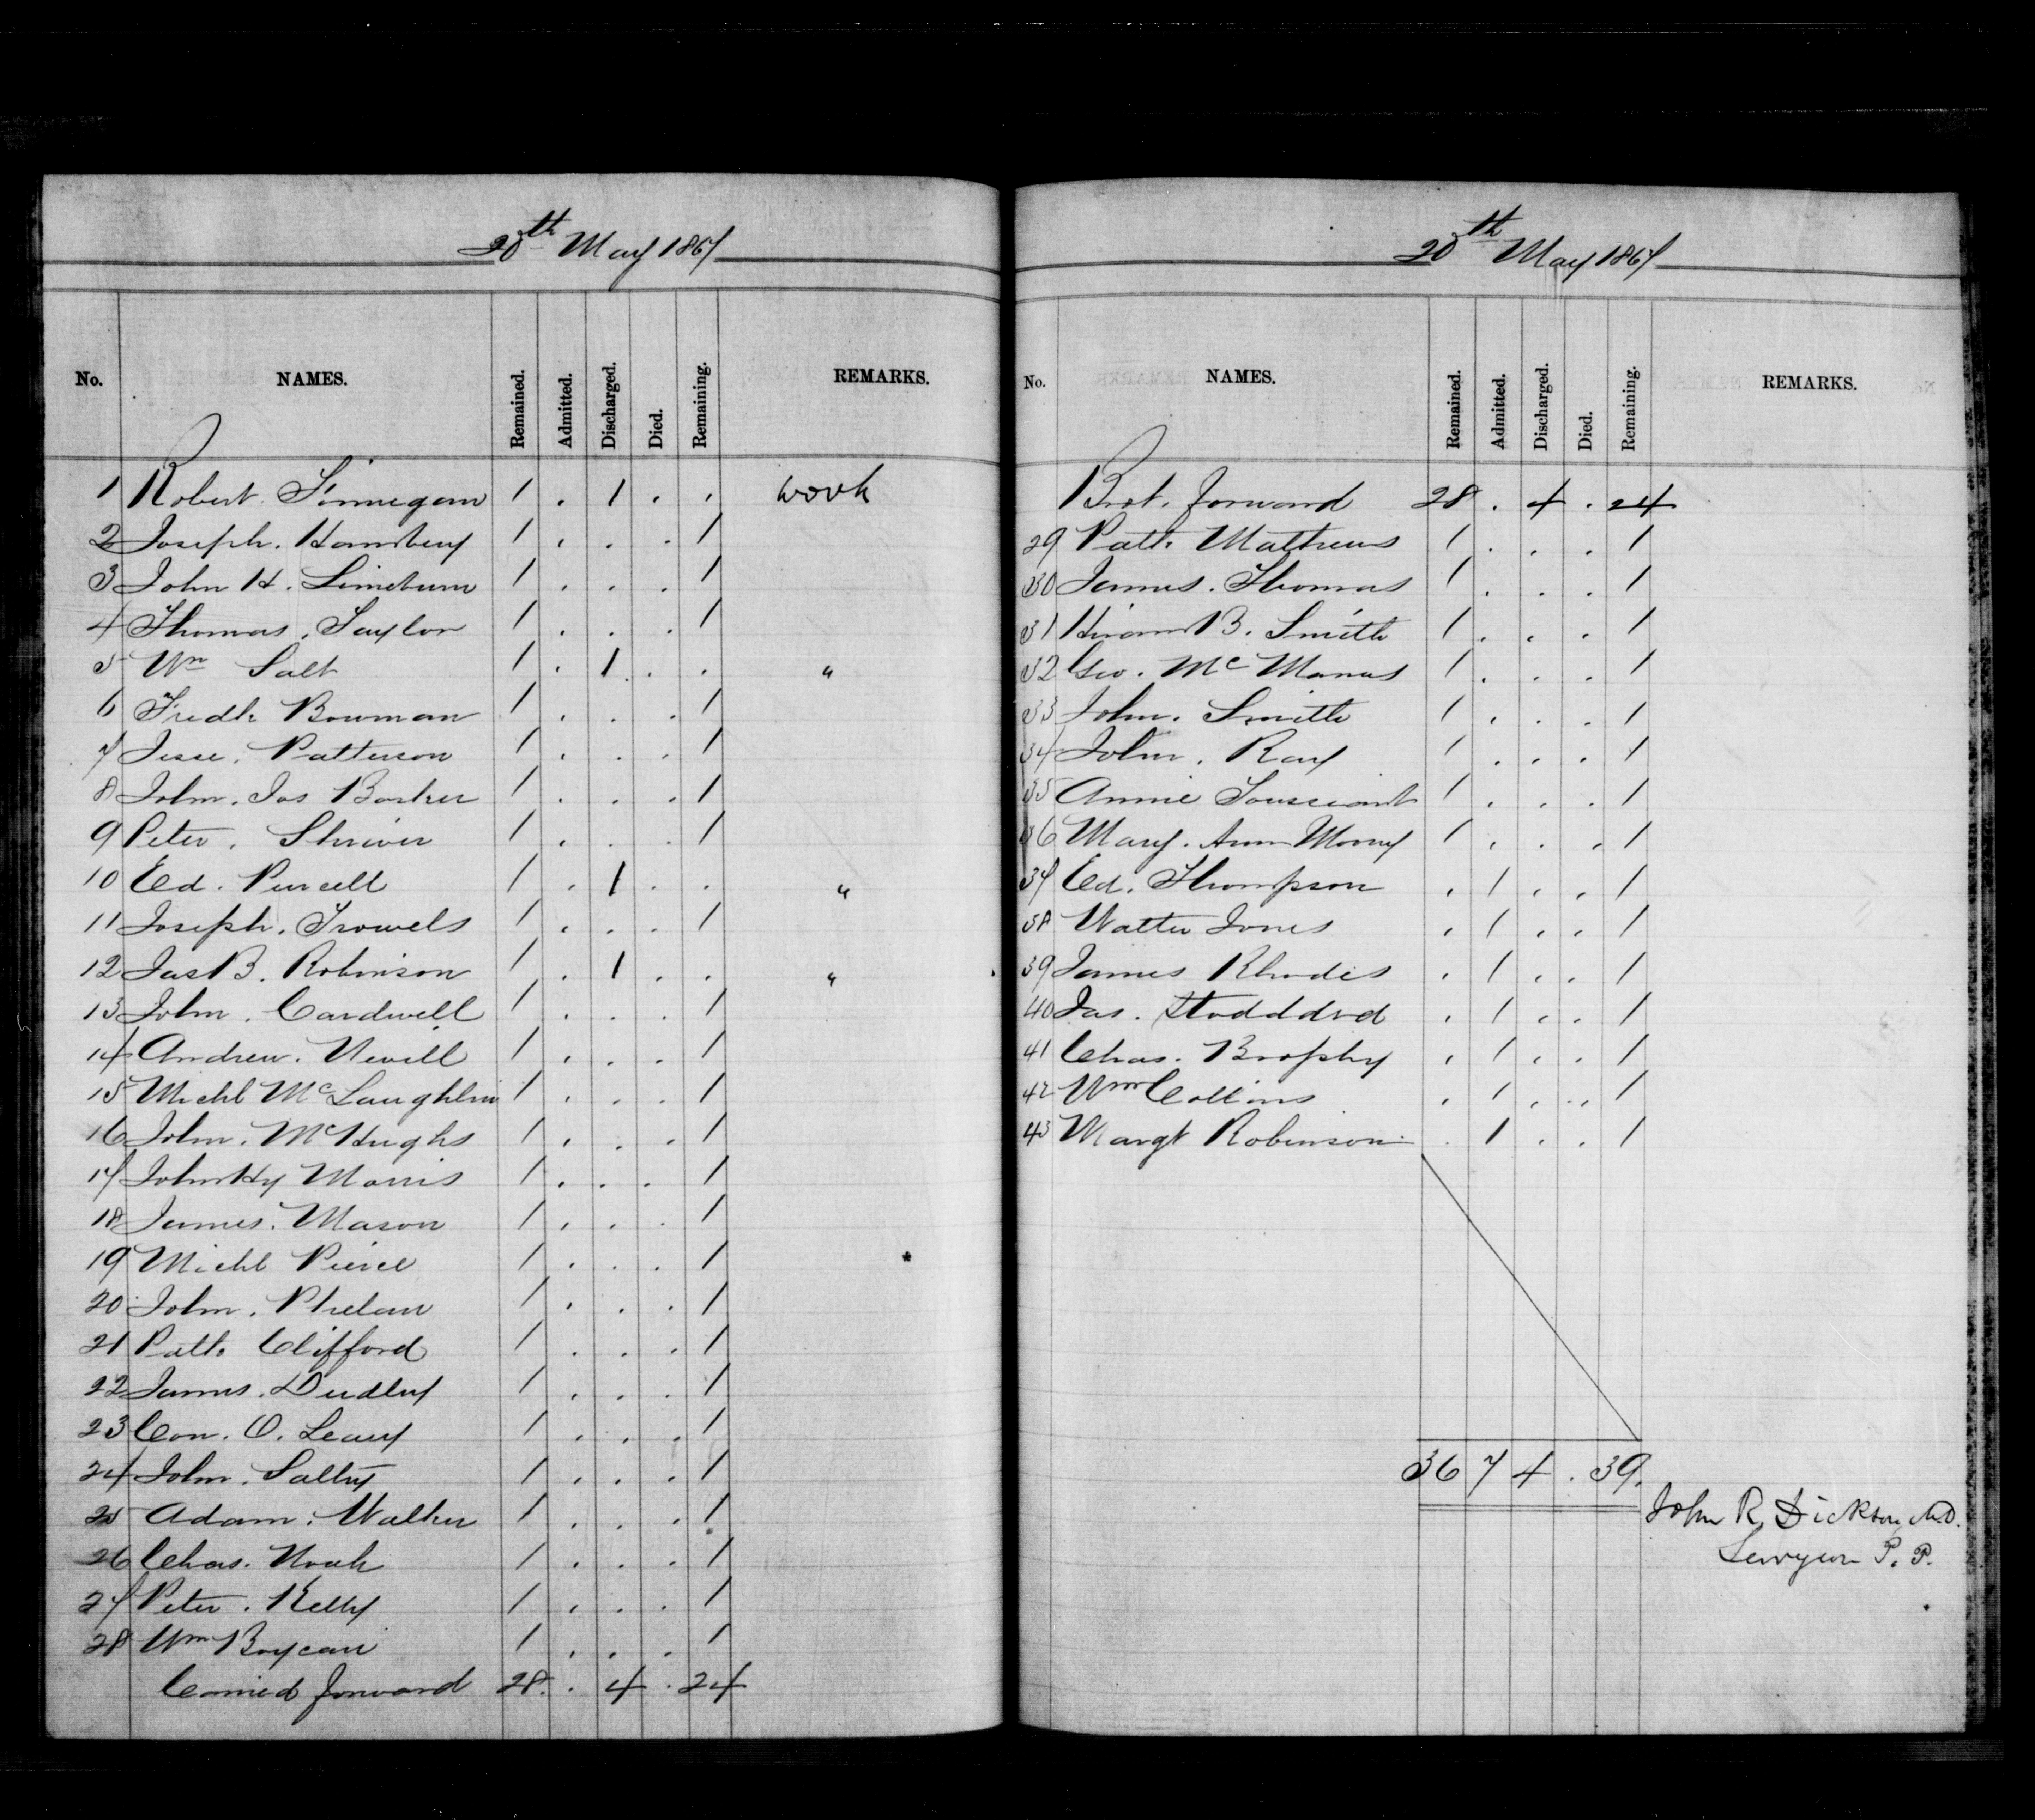 20th May 1867
No. NAMES. Remained. Admitted. Discharged. Died. Remaining. REMARKS.
1 Robert Finnegan 1 . 1 . . work
2 Joseph. Hansbury 1 . . . 1
3 John H. Lineburn 1 . . . 1
4 Thomas. Taylor 1 . . . 1
5 Wm Salt 1 . 1 . . "
6 Fredk Bowman 1 . . . 1
7 Jesse. Patterson 1 . . . 1
8 John. Jas Barker 1 . . . 1
9 Peter. Shriver 1 . . . 1
10 Ed. Purcell 1 . 1 . . "
11 Joseph. Trowels 1 . . . 1
12 Jas B. Robinson 1 . 1 . . "
13 John. Cardwell 1 . . . 1
14 Andrew. Nevill 1 . . . 1
15 Michl McLaughlin 1 . . . 1
16 John. McHughs 1 . . . 1
17 John Hy Morris 1 . . . 1
18 James. Mason 1 . . . 1
19 Michl Pierce 1 . . . 1
20 John. Phelan 1 . . . 1
21 Patk Clifford 1 . . . 1
22 James. Dudley 1 . . . 1
23 Con. O. Leary 1 . . . 1
24 John. Salty 1 . . . 1
25 Adam. Walker 1 . . . 1
26 Chas. Noah 1 . . . 1
27 Peter. Kelly 1 . . . 1
28 Wm 1 . . . 1
Carried forward 28 . 4 . 24
20th May 1867
No. NAMES. Remained. Admitted. Discharged. Died. Remaining. REMARKS.
Brot. forward 28 . 4 . 24
29 Patk Mathews 1 . . . 1
30 James. Thomas 1 . . . 1
31 Hiram B. Smith 1 . . . 1
32 Geo. McManus 1 . . . 1
33 John. Smith 1 . . . 1
34 John. Ray 1 . . . 1
35 Annie Toussiant 1 . . . 1
36 Mary. Ann Morry 1 . . . 1
37 Ed. Thompson . 1 . . 1
38 Walter Jones . 1 . . 1
39 James Rhodes . 1 . . 1
40 Jas. Stodddrd . 1 . . 1
41 Chas. Brophy . 1 . . 1
42 Wm Collins . 1 . . 1
43 Margt Robinson . 1 . . 1
36 7 4 . 39.
John R. Dickson, M.D.
Surgeon P. P.